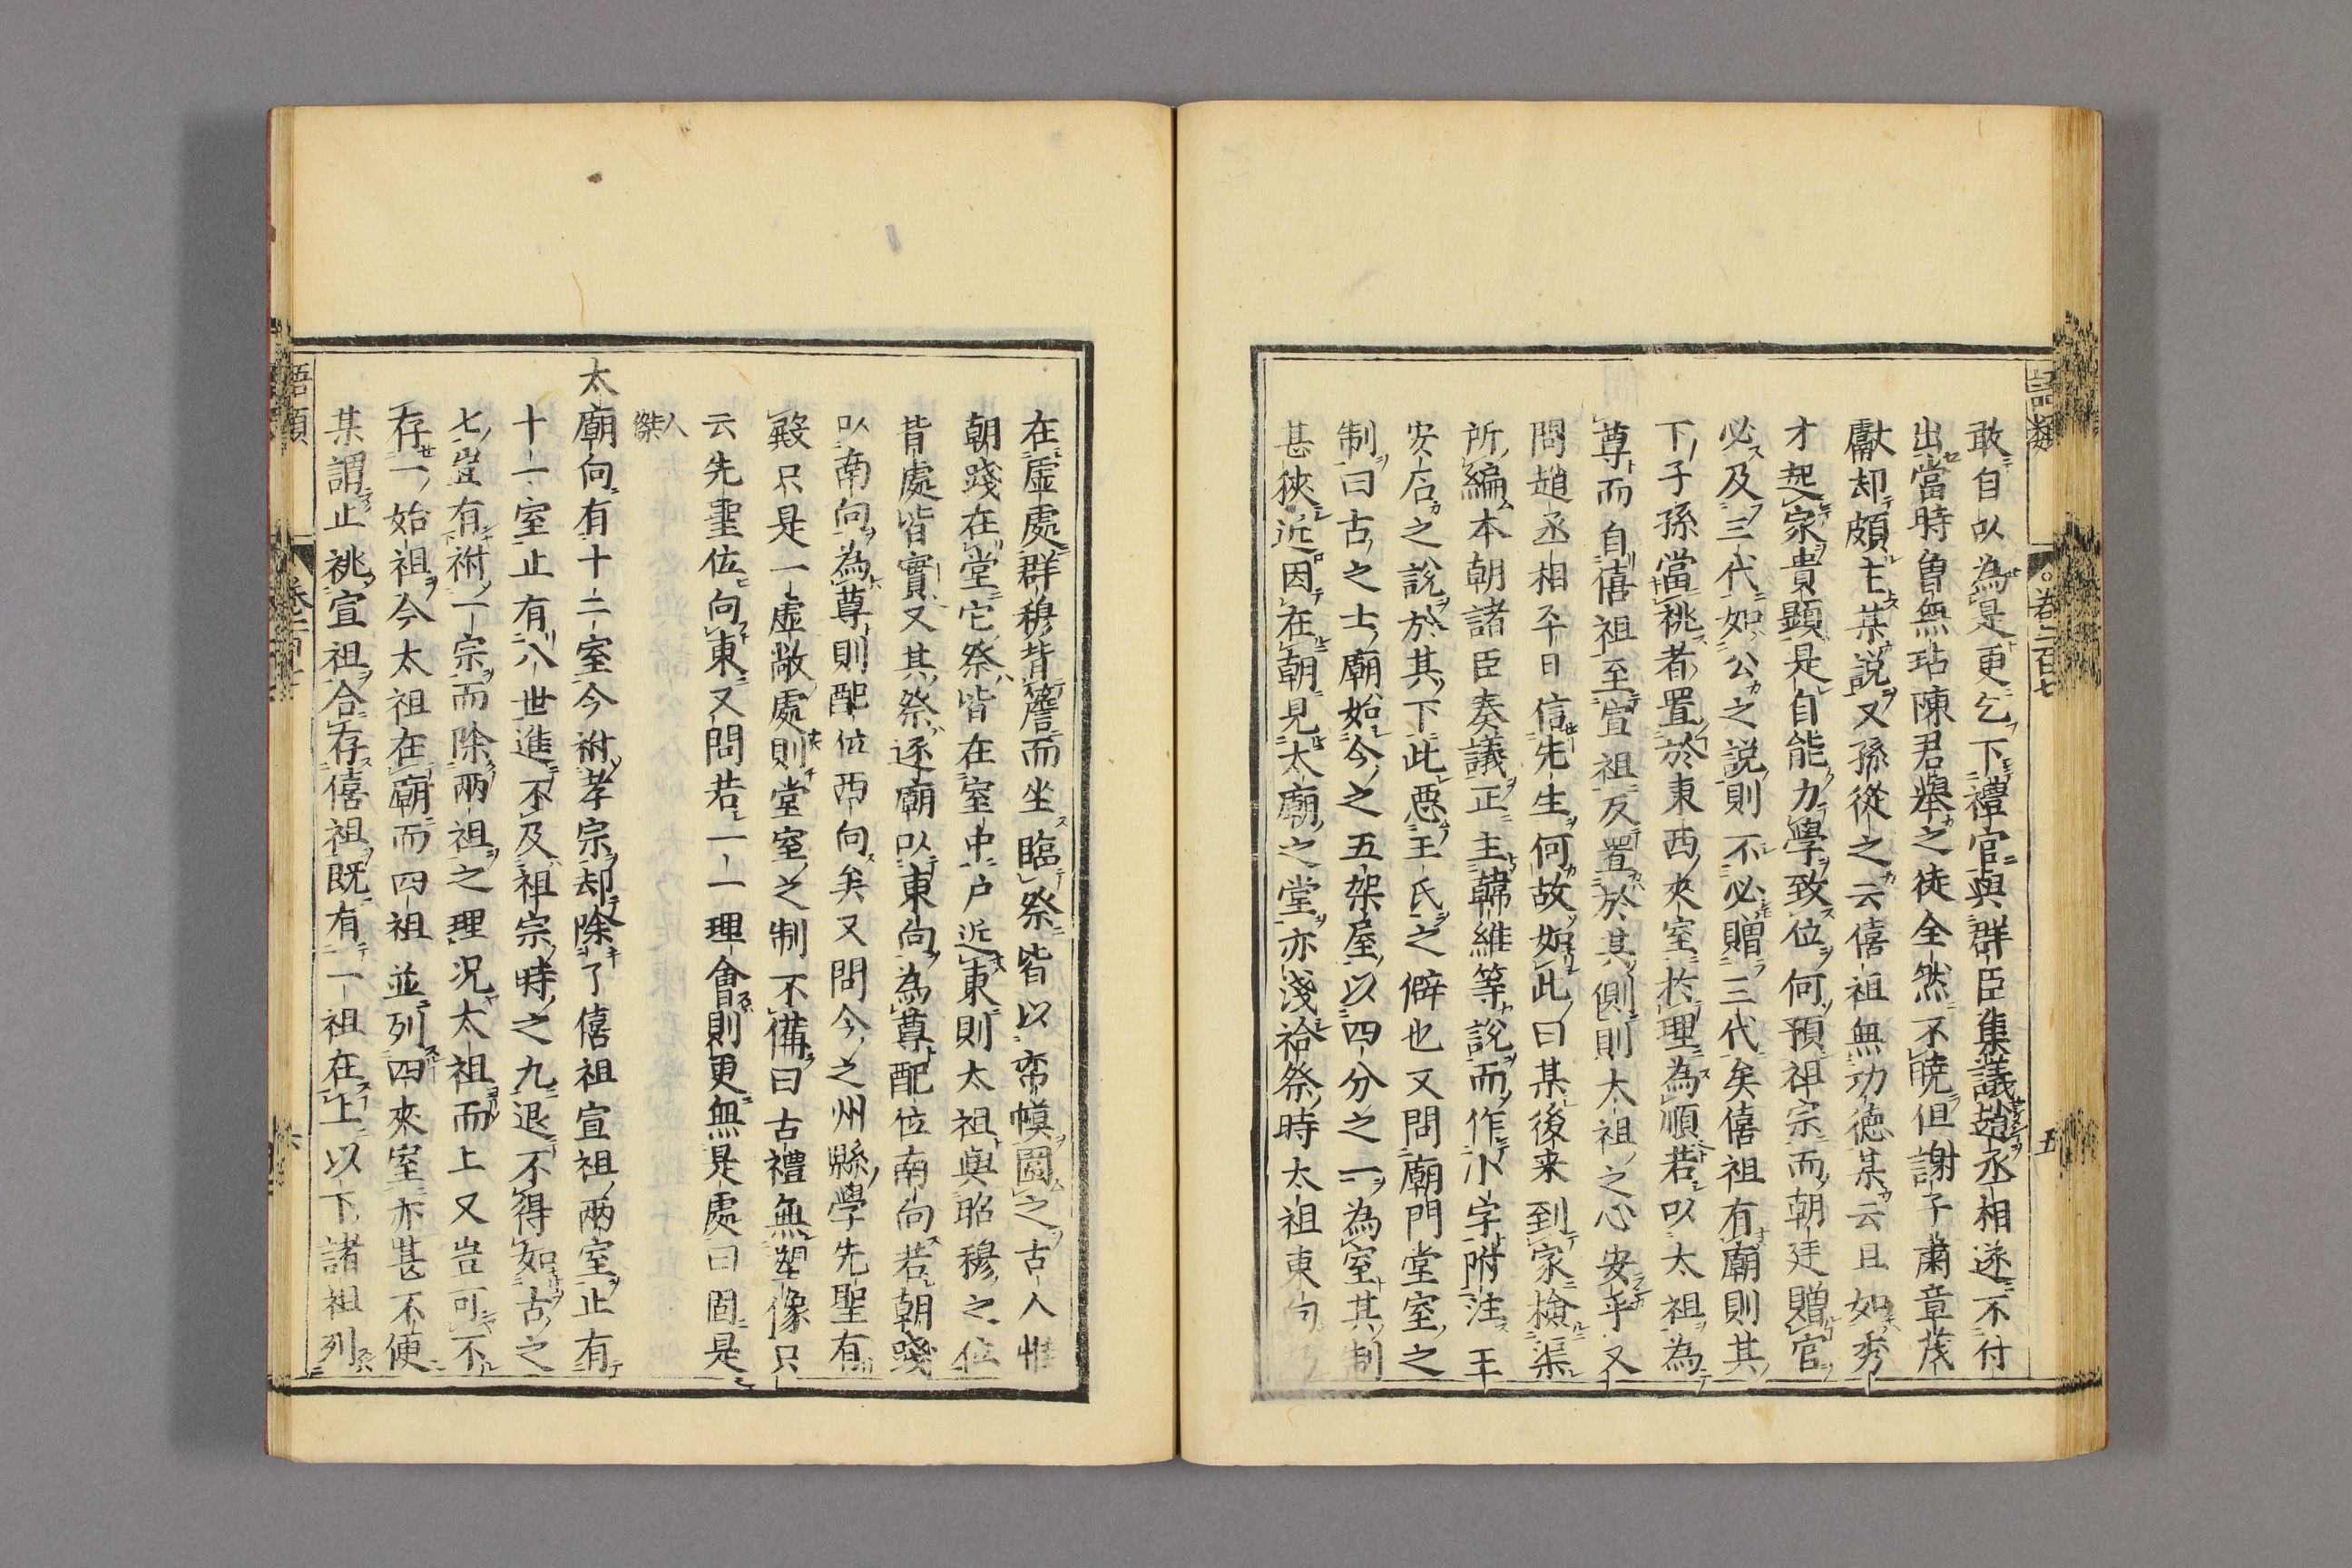 語類
卷一百七
五
敢自以為是更乞下禮官與群臣集議趙丞相遂不付
出當時曾無玷陳君舉之徒全然不曉但謝子肅章茂
獻却頗主某說又孫從之云僖祖無功德某云且如秀
才起家貴顯是自能力學致位何預祖宗而朝廷贈官
必及三代如公之說則不必贈三代矣僖祖有廟則其
下子孫當祧者置於東西夾室於理為順若以太祖為
尊而自僖祖至宣祖反置於其側則太祖之心安乎又
問趙丞相平日信先生何故如此曰某後来到家檢渠
所編本朝諸臣奏議正主韓維等說而作小字附注王
安石之說於其下此惡王氏之僻也又問廟門堂室之
制曰古之士廟始今之五架屋以四分之一為室其制
甚狹近因在朝見太廟之堂亦淺祫祭時太祖東向
在虛處群穆背簷而坐臨祭皆以帟幙圍之古人惟
朝踐在堂它祭皆在室中户近東則太祖與昭穆之位
背處皆實又其祭逐廟以東向為尊配位南向若朝踐
以南向為尊則配位西向矣又問今之州縣學先聖有
殿只是一虛敞處則堂室之制不備曰古禮無塑像只
云先聖位向東又問若一一理會則更無是處曰固是
人傑
太廟向有十二室今祔孝宗却除了僖祖宣祖兩室止有
十一室止有八世進不及祖宗時之九退不得如古之
七豈有祔一宗而除兩祖之理况太祖而上又豈可不
存一始祖今太祖在廟而四祖並列四夾室亦甚不便
某謂止祧宣祖合存僖祖既有一祖在上以下諸祖列
語類
卷一百七
六